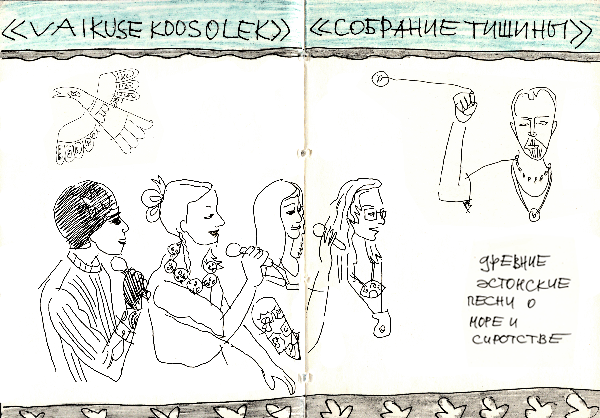 «VAIKUSE KOOSOLEK»
«СОБРАНИЕ ТИШИНЫ»
ДРЕВНИЕ
ЭСТОНСКИЕ
ПЕСНИ О
МОРЕ И
СИРОТСТВЕ